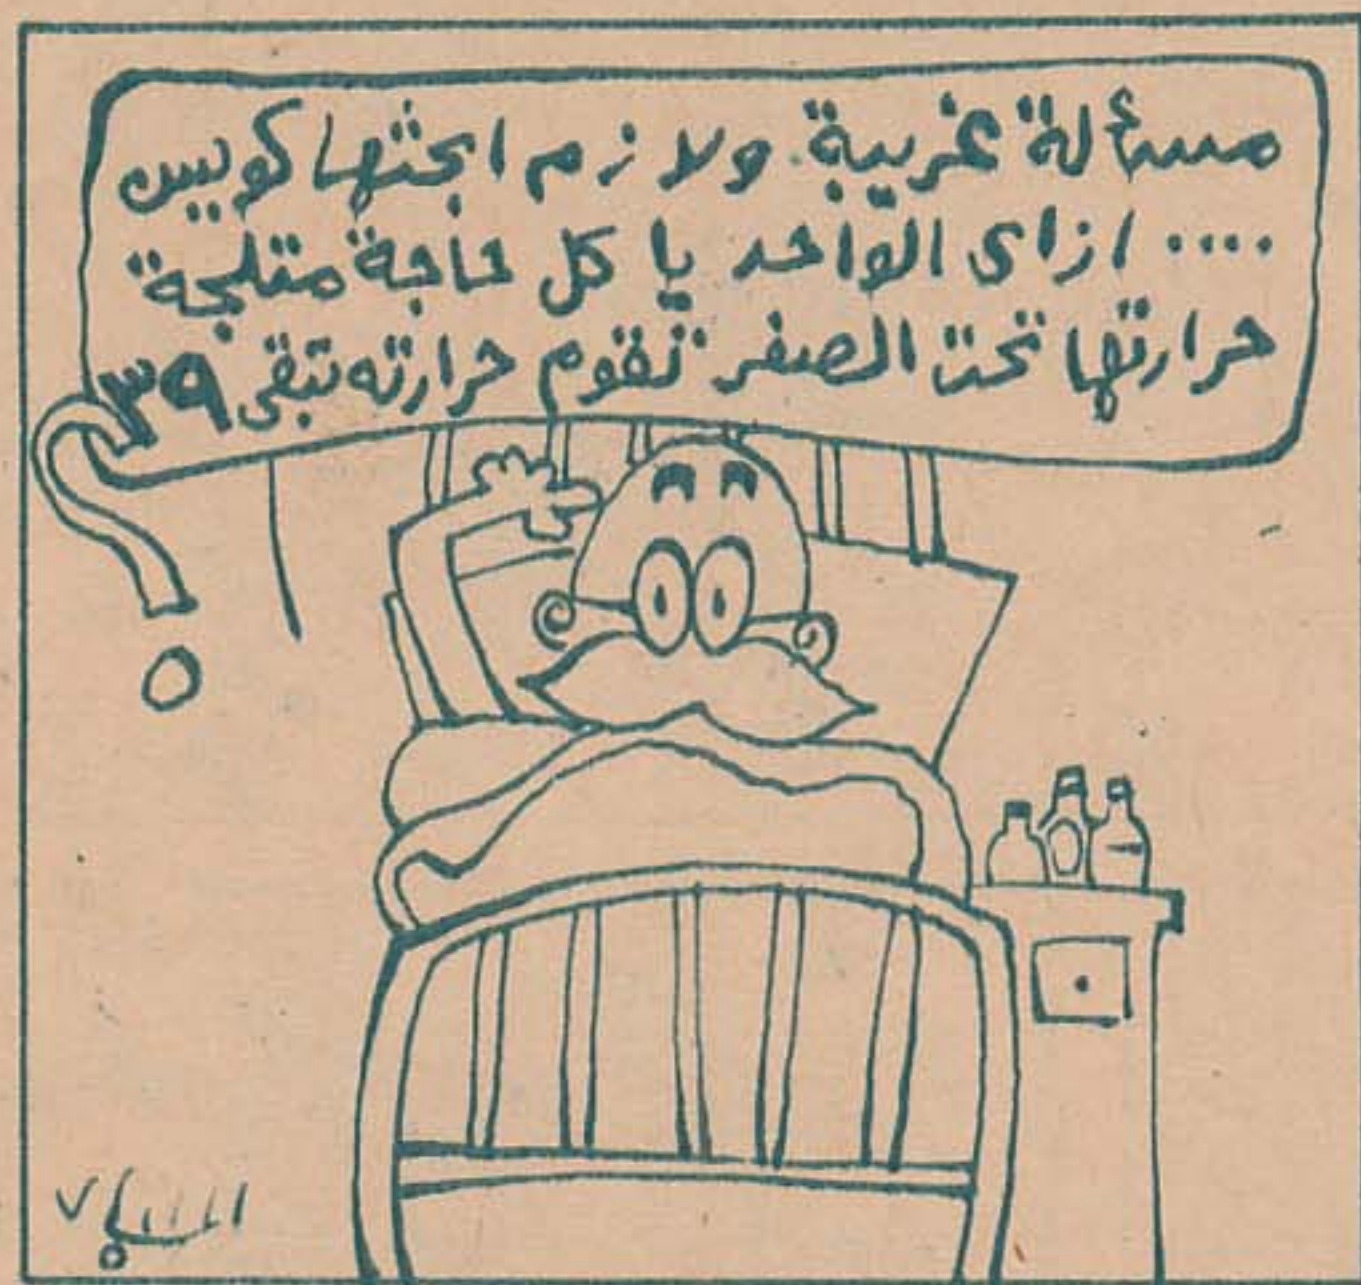 مسألة غريبة. ولازم ابحثها كويس
.... ازاى الواحد ياكل حاجة متلجة
حرارتها تحت الصفر تقوم حرارته تبقى ٣٩
؟